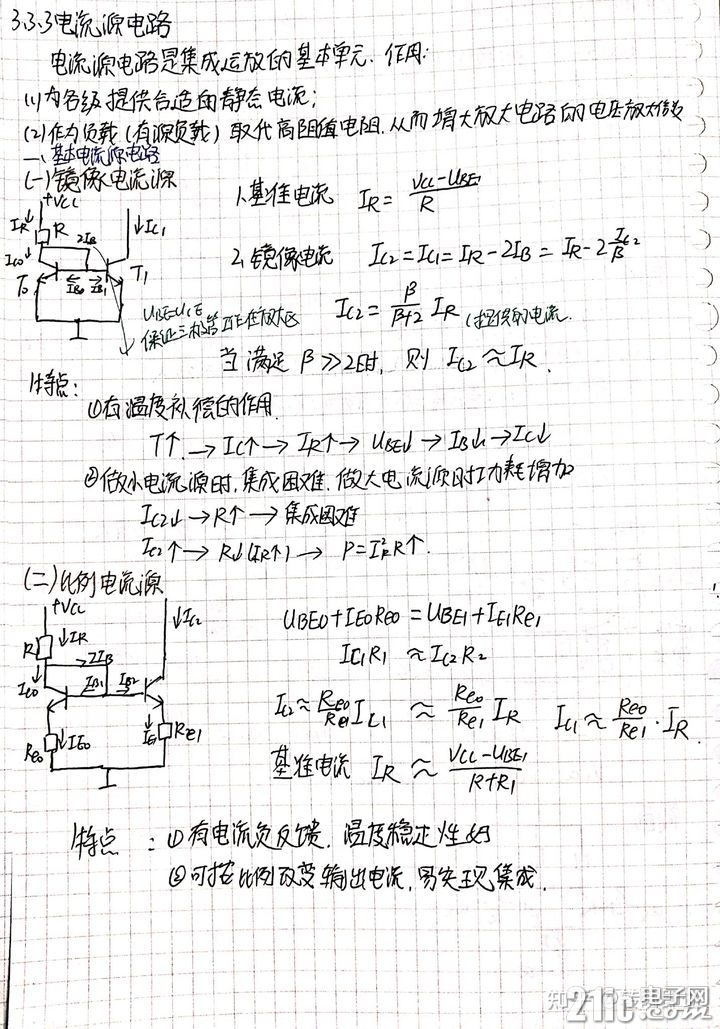 3.3.3电流源电路
电流源电路是集成运放的基本单元. 作用:
(1)为各级提供合适的静态电流;
(2)作为负载(有源负载)取代高阻值电阻.从而增大放大电路的电压放大倍数
一、基本电流源电路
(一)镜像电流源
+VCC
IR↓ R ↓IC1
2IB
IC0↓
T0 IB0 IB1 T1
1.基准电流 IR = (VCC-UBE1)/R
2.镜像电流 IC2=IC1=IR-2IB=IR-2IC2/β
UBE=UCE
保证三极管工作在放大区
IC2=β/(β+2) IR (提供的电流.
当满足β≫2时, 则 IC2≈IR.
特点:
①有温度补偿的作用.
T↑.→IC↑→IR↑→UBE↓→IB↓→IC↓
②做小电流源时,集成困难.做大电流源时功耗增加
IC2↓→R↑→集成困难
IC2↑→R↓(IR↑)→P=I²R R↑.
(二)比例电流源
+VCC
R ↓IR ↓IC2
2IB
IC0↓ IB1 IB2
Re0 ↓IE0 IE1↓ Re1
UBE0+IE0Re0=UBE1+IE1Re1
IC1R1≈IC2R2
IC2≈Re0/Re1 IC1≈Re0/Re1 IR IC1≈Re0/Re1·IR
基准电流 IR≈(VCC-UBE1)/(R+R1)
特点:①有电流负反馈.温度稳定性好
②可按比例改变输出电流,易实现集成.
21ic电子网
.com